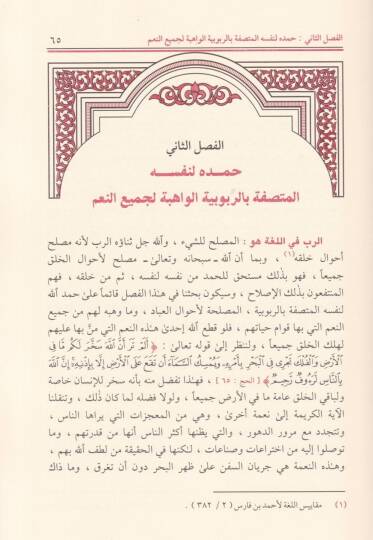 الفصل الثاني : حمده لنفسه المتصفة بالربوبية الواهبة لجميع النعم
٦٥
الفصل الثاني
حمده لنفسه
المتصفة بالربوبية الواهبة لجميع النعم
الرب في اللغة هو : المصلح للشيء ، والله جل ثناؤه الرب لأنه مصلح
أحوال خلقه(١) ، وبما أن الله ـ سبحانه وتعالى ـ مصلح لأحوال الخلق
جميعاً ، فهو بذلك مستحق للحمد من نفسه لنفسه ، ثم من خلقه ، فهم
المنتفعون بذلك الإصلاح ، وسيكون بحثنا في هذا الفصل قائماً على حمد الله
لنفسه المتصفة بالربوبية ، المصلحة لأحوال العباد ، وما وهبه لهم من جميع
النعم التي بها قوام حياتهم ، فلو قطع الله إحدى هذه النعم التي منَّ بها عليهم
لهلك الخلق جميعاً ، ولننظر إلى قوله تعالى : ﴿ أَلَمْ تَرَ أَنَّ اللَّهَ سَخَّرَ لَكُم مَّا فِي
الْأَرْضِ وَالْفُلْكَ تَجْرِي فِي الْبَحْرِ بِأَمْرِهِ وَيُمْسِكُ السَّمَاءَ أَن تَقَعَ عَلَى الْأَرْضِ إِلَّا بِإِذْنِهِ إِنَّ اللَّهَ
بِالنَّاسِ لَرَءُوفٌ رَّحِيمٌ ﴾ [ الحج : ٦٥ ] ، فهذا تفضل منه بأنه سخر للإنسان خاصة
ولباقي الخلق عامة ما في الأرض جميعاً ، ولولا فضله لما كان ذلك ، وتنقلنا
الآية الكريمة إلى نعمة أخرى ، وهي من المعجزات التي يراها الناس ،
وتتجدد مع مرور الدهور ، والتي يظنها أكثر الناس أنها من قدرتهم ، وما
توصلوا إليه من اختراعات وصناعات ، لكنها في الحقيقة من لطف الله بهم ،
وهذه النعمة هي جريان السفن على ظهر البحر دون أن تغرق ، وما ذاك
(١) مقاييس اللغة لأحمد بن فارس ( ٢ / ٣٨٢ ) .